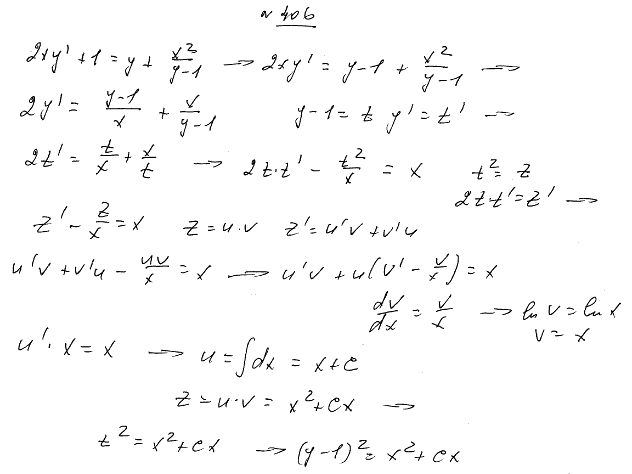 № 406
2xy' + 1 = y + x²/(y-1) → 2xy' = y-1 + x²/(y-1) →
2y' = (y-1)/x + x/(y-1)    y-1 = t  y' = t' →
2t' = t/x + x/t → 2t·t' - t²/x = x    t² = z
2t·t' = z' →
z' - z/x = x    z = u·v    z' = u'v + v'u
u'v + v'u - uv/x = x → u'v + u(v' - v/x) = x
dv/dx = v/x → ln v = ln x
v = x
u'·x = x → u = ∫dx = x + c
z = u·v = x² + cx →
t² = x² + cx → (y-1)² = x² + cx